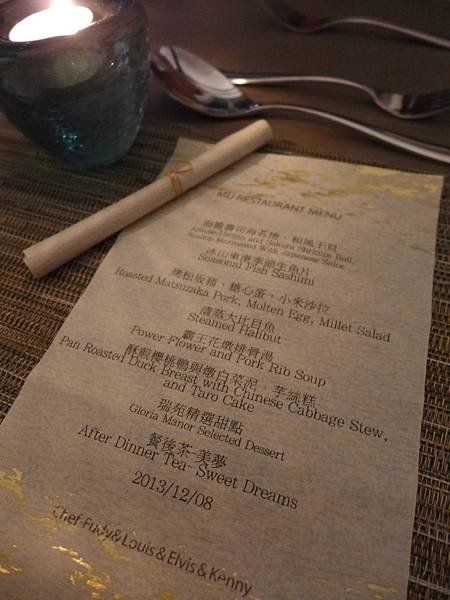 MU RESTAURANT MENU
海龍壽司海苔捲、和風干貝
Amuse-Urchin and Sakura Shrimps Roll,
Scallop Marinated with Japanese Sauce
冰山東港季節生魚片
Seasonal Fish Sashimi
烤松坂豬、糖心蛋、小米沙拉
Roasted Matsuzaka Pork, Molten Egg, Millet Salad
清蒸大比目魚
Steamed Halibut
霸王花燉排骨湯
Power Flower and Pork Rib Soup
酥煎櫻桃鴨與燉白菜泥、芋絲糕
Pan Roasted Duck Breast with Chinese Cabbage Stew,
and Taro Cake
瑞苑精選甜點
Gloria Manor Selected Dessert
餐後茶-美夢
After Dinner Tea- Sweet Dreams
2013/12/08
Chef Fudy& Louis & Elvis & Kenny